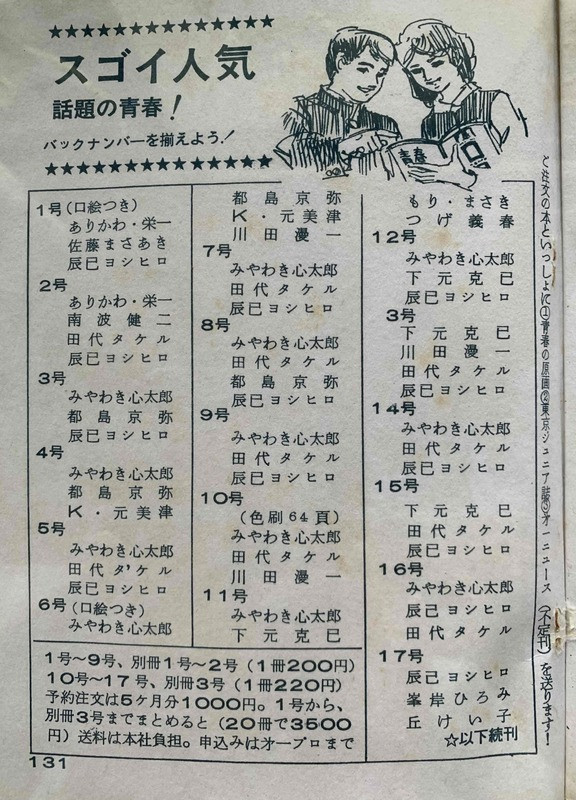 ★★★★★★★★★★★★★
スゴイ人気
話題の青春！
バックナンバーを揃えよう！
★★★★★★★★★★★★★
青春
1号(口絵つき)
ありかわ・栄一
佐藤まさあき
辰巳ヨシヒロ
2号
ありかわ・栄一
南波健二
田代タケル
辰巳ヨシヒロ
3号
みやわき心太郎
都島京弥
辰巳ヨシヒロ
4号
みやわき心太郎
都島京弥
K・元美津
5号
みやわき心太郎
田代タケル
辰巳ヨシヒロ
6号(口絵つき)
みやわき心太郎
都島京弥
K・元美津
川田漫一
7号
みやわき心太郎
田代タケル
辰巳ヨシヒロ
8号
みやわき心太郎
田代タケル
都島京弥
辰巳ヨシヒロ
9号
みやわき心太郎
田代タケル
辰巳ヨシヒロ
10号
(色刷64頁)
みやわき心太郎
田代タケル
川田漫一
11号
みやわき心太郎
下元克巳
もり・まさき
つげ義春
12号
みやわき心太郎
下元克巳
辰巳ヨシヒロ
3号
下元克巳
川田漫一
田代タケル
辰巳ヨシヒロ
14号
みやわき心太郎
田代タケル
辰巳ヨシヒロ
15号
下元克巳
田代タケル
辰巳ヨシヒロ
16号
みやわき心太郎
辰己ヨシヒロ
田代タケル
17号
辰己ヨシヒロ
峯岸ひろみ
丘けい子
☆以下続刊
1号〜9号、別冊1号〜2号(1冊200円)
10号〜17号、別冊3号(1冊220円)
予約注文は5ケ月分1000円。1号から、
別冊3号までまとめると(20冊で3500
円)送料は本社負担。申込みは㐧一プロまで
ご注文の本といっしょに①青春の原画②東京ジュニア誌③㐧一ニュース(不定刊)を送ります！
131